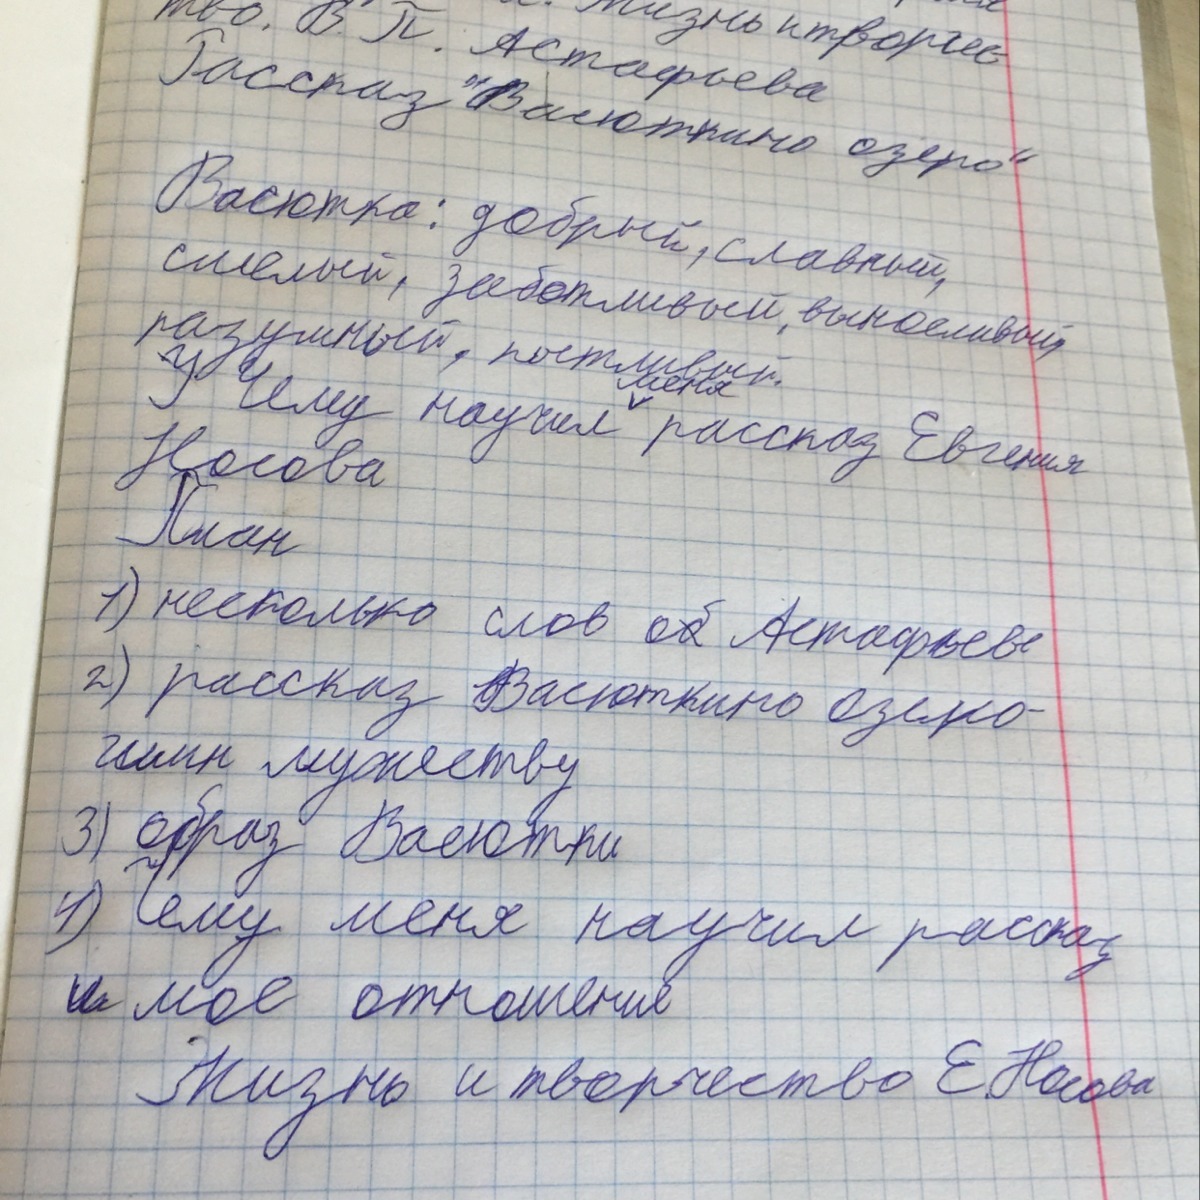 Жизнь и творчес
тво. В. П. Астафьева
Рассказ "Васюткино озеро"
Васютка: добрый, славный,
смелый, заботливый, выносливый,
разумный,
У Чему научил меня рассказ Евгения
Носова
План
1) несколько слов об Астафьеве
2) рассказ Васюткино озеро-
гимн мужеству
3) образ Васютки
4) Чему меня научил рассказ
и мое отношение
Жизнь и творчество Е. Носова